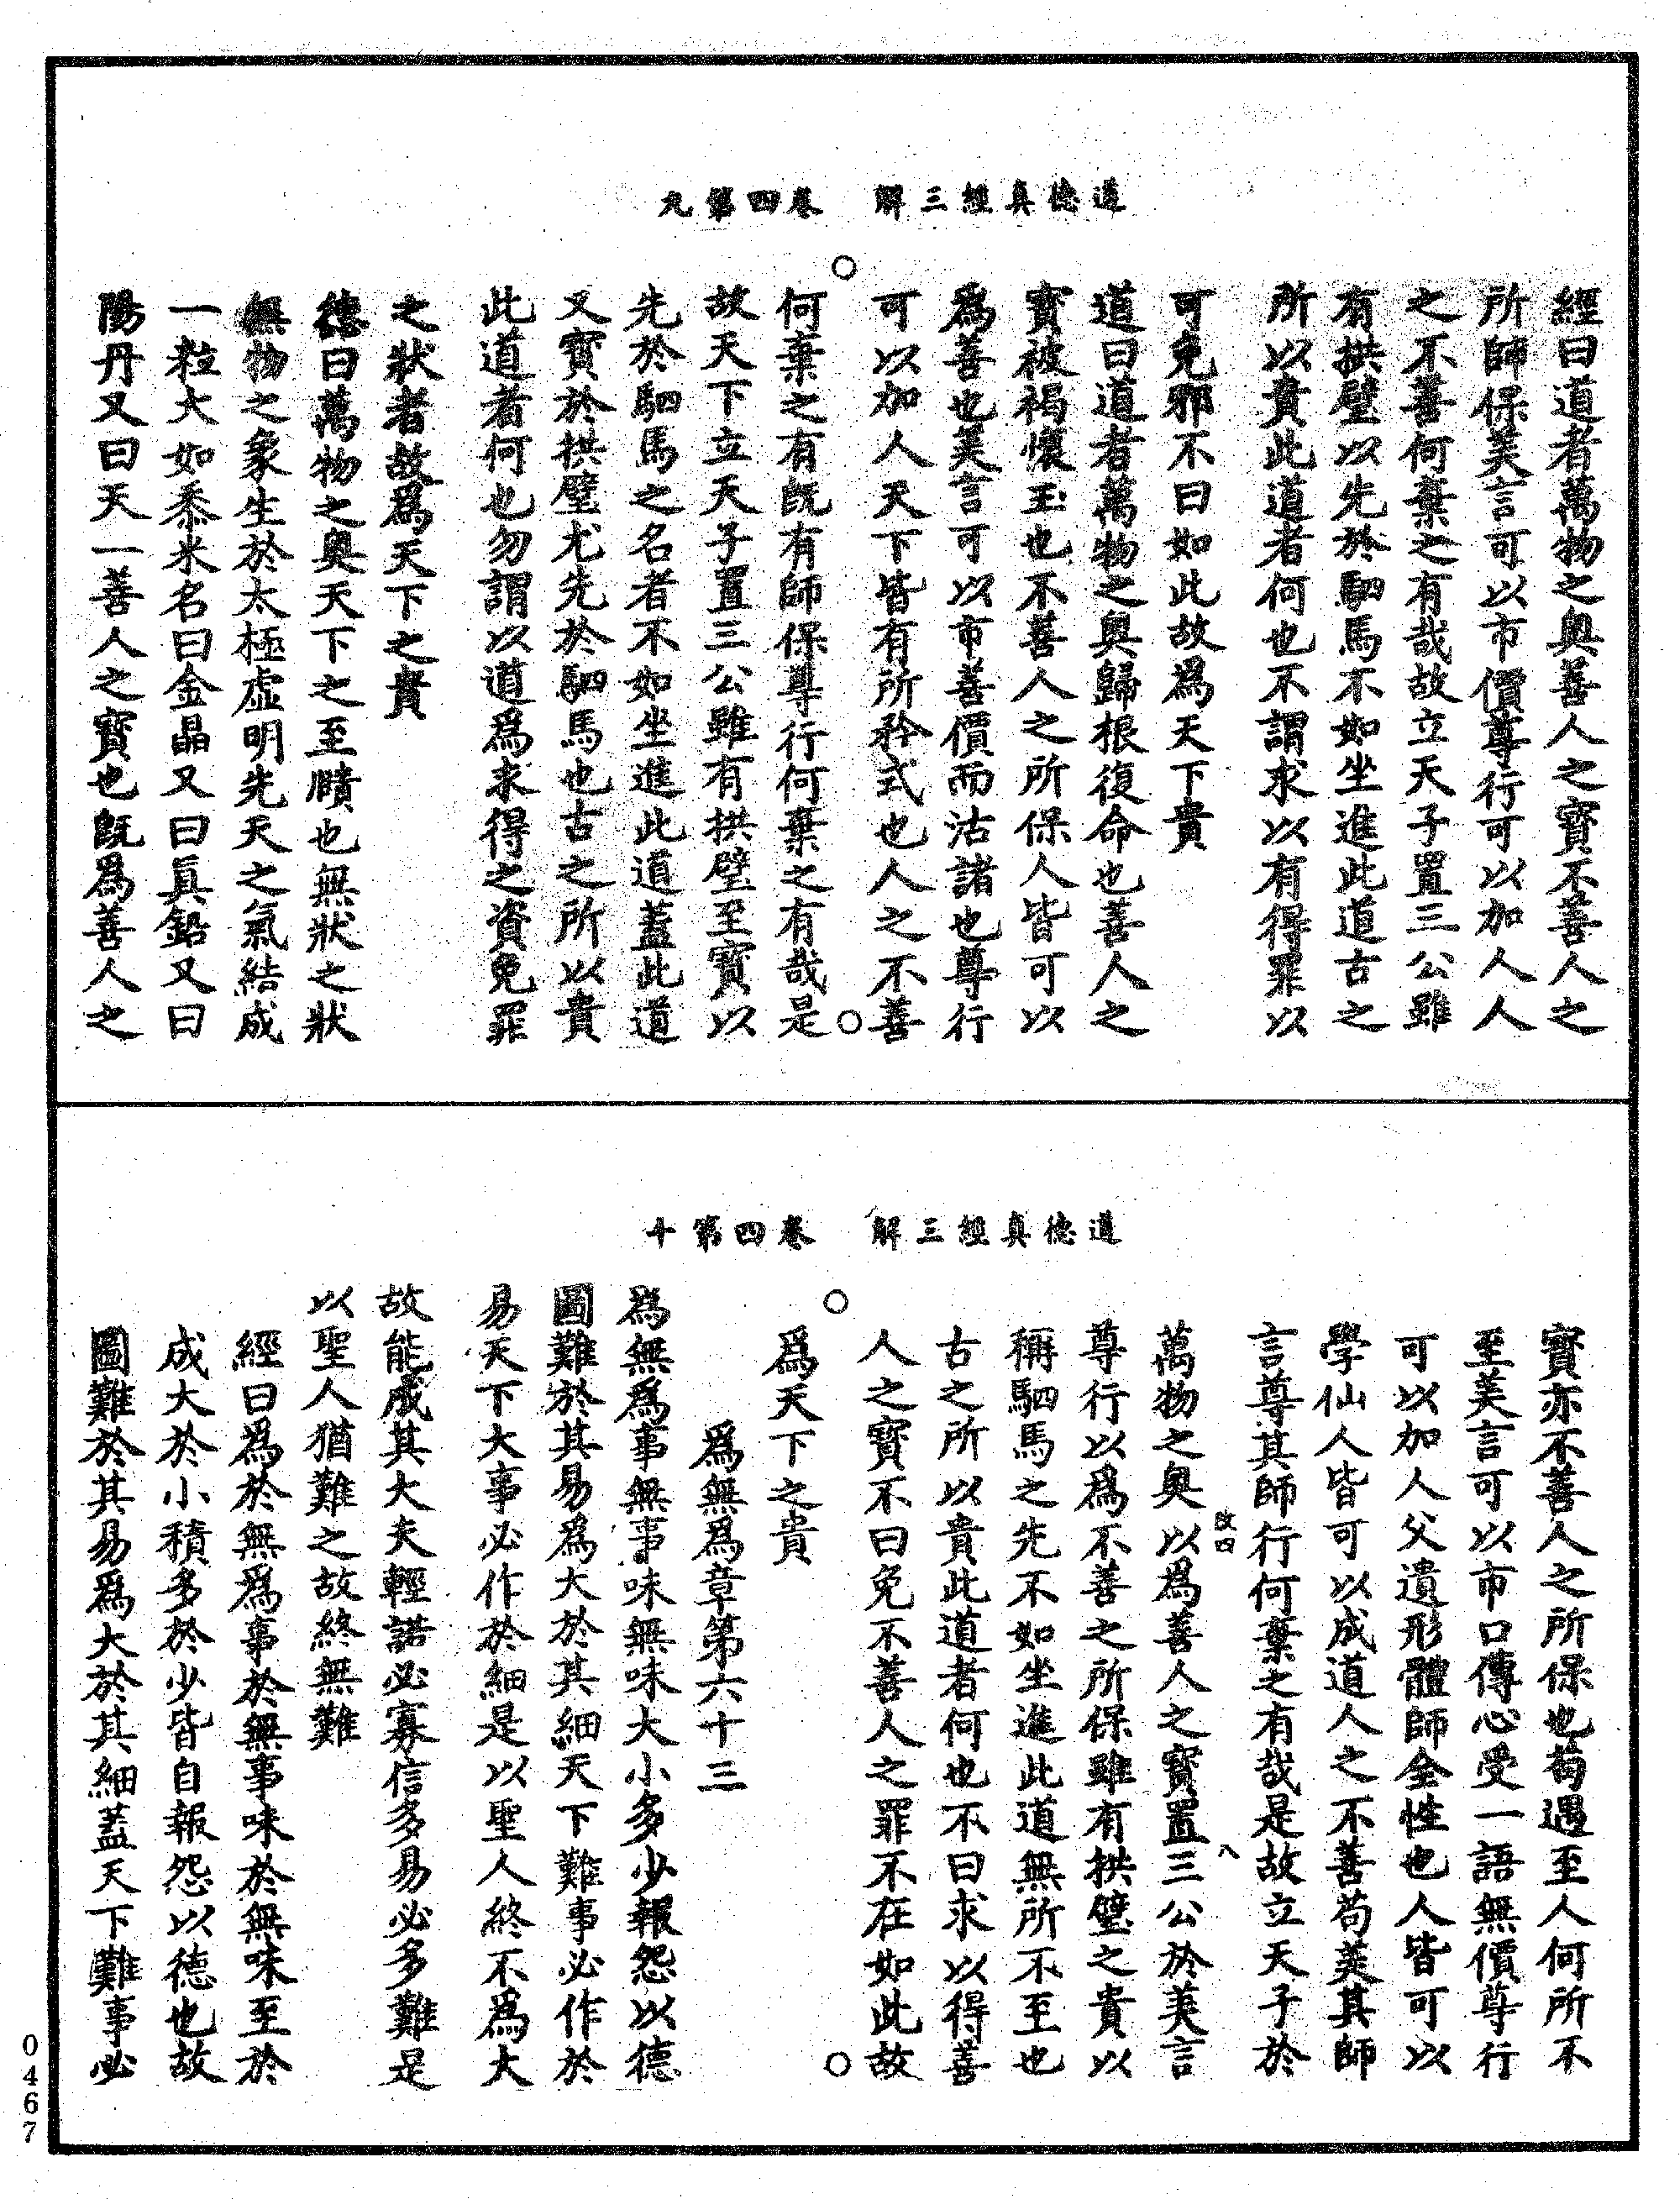 道德真經三解　卷四第九
經曰道者萬物之奧善人之寶不善人之
所師保美言可以市價尊行可以加人人
之不善何棄之有哉故立天子置三公雖
有拱璧以先於駟馬不如坐進此道古之
所以貴此道者何也不謂求以有得罪以
可免邪不曰如此故爲天下貴
道曰道者萬物之奧歸根復命也善人之
寶被褐懷玉也不善人之所保人皆可以
爲善也美言可以市善價而沽諸也尊行
可以加人天下皆有所矜式也人之不善
何棄之有旣有師保尊行何棄之有哉是
故天下立天子置三公雖有拱璧至寶以
先於駟馬之名者不如坐進此道蓋此道
又寶於拱璧尤先於駟馬也古之所以貴
此道者何也勿謂以道爲求得之資免罪
之狀者故爲天下之貴
德曰萬物之奧天下之至賾也無狀之狀
無物之象生於太極虛明先天之氣結成
一粒大如黍米名曰金晶又曰真鉛又曰
陽丹又曰天一善人之寶也旣爲善人之
道德真經三解　卷四第十
寶亦不善人之所保也苟遇至人何所不
至美言可以市口傳心受一語無價尊行
可以加人父遺形體師全性也人皆可以
學仙人皆可以成道人之不善苟美其師
言尊其師行何棄之有哉是故立天子於
改四
八
萬物之奧以爲善人之寶置三公於美言
尊行以爲不善之所保雖有拱璧之貴以
稱駟馬之先不如坐進此道無所不至也
古之所以貴此道者何也不曰求以得善
人之寶不曰免不善人之罪不在如此故
爲天下之貴
爲無爲章第六十三
爲無爲事無事味無味大小多少報怨以德
圖難於其易爲大於其細天下難事必作於
易天下大事必作於細是以聖人終不爲大
故能成其大夫輕諾必寡信多易必多難是
以聖人猶難之故終無難
經曰爲於無爲事於無事味於無味至於
成大於小積多於少皆自報怨以德也故
圖難於其易爲大於其細蓋天下難事必
0467